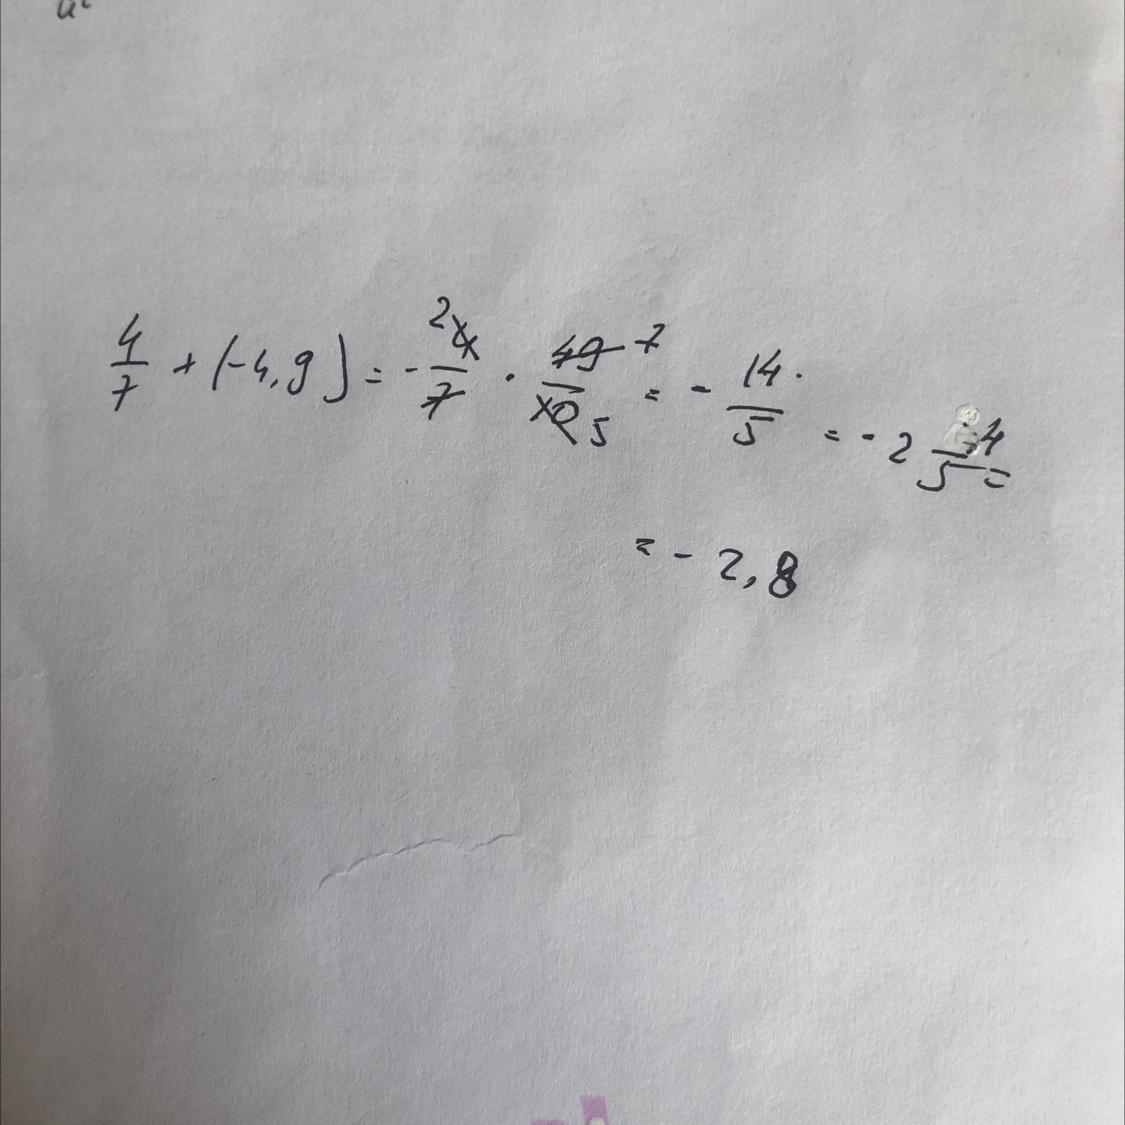 4/7 + (-4,9) = - 2 4/7 · 49 7/10 5 = - 14/5 = - 2 4/5 =
= - 2,8